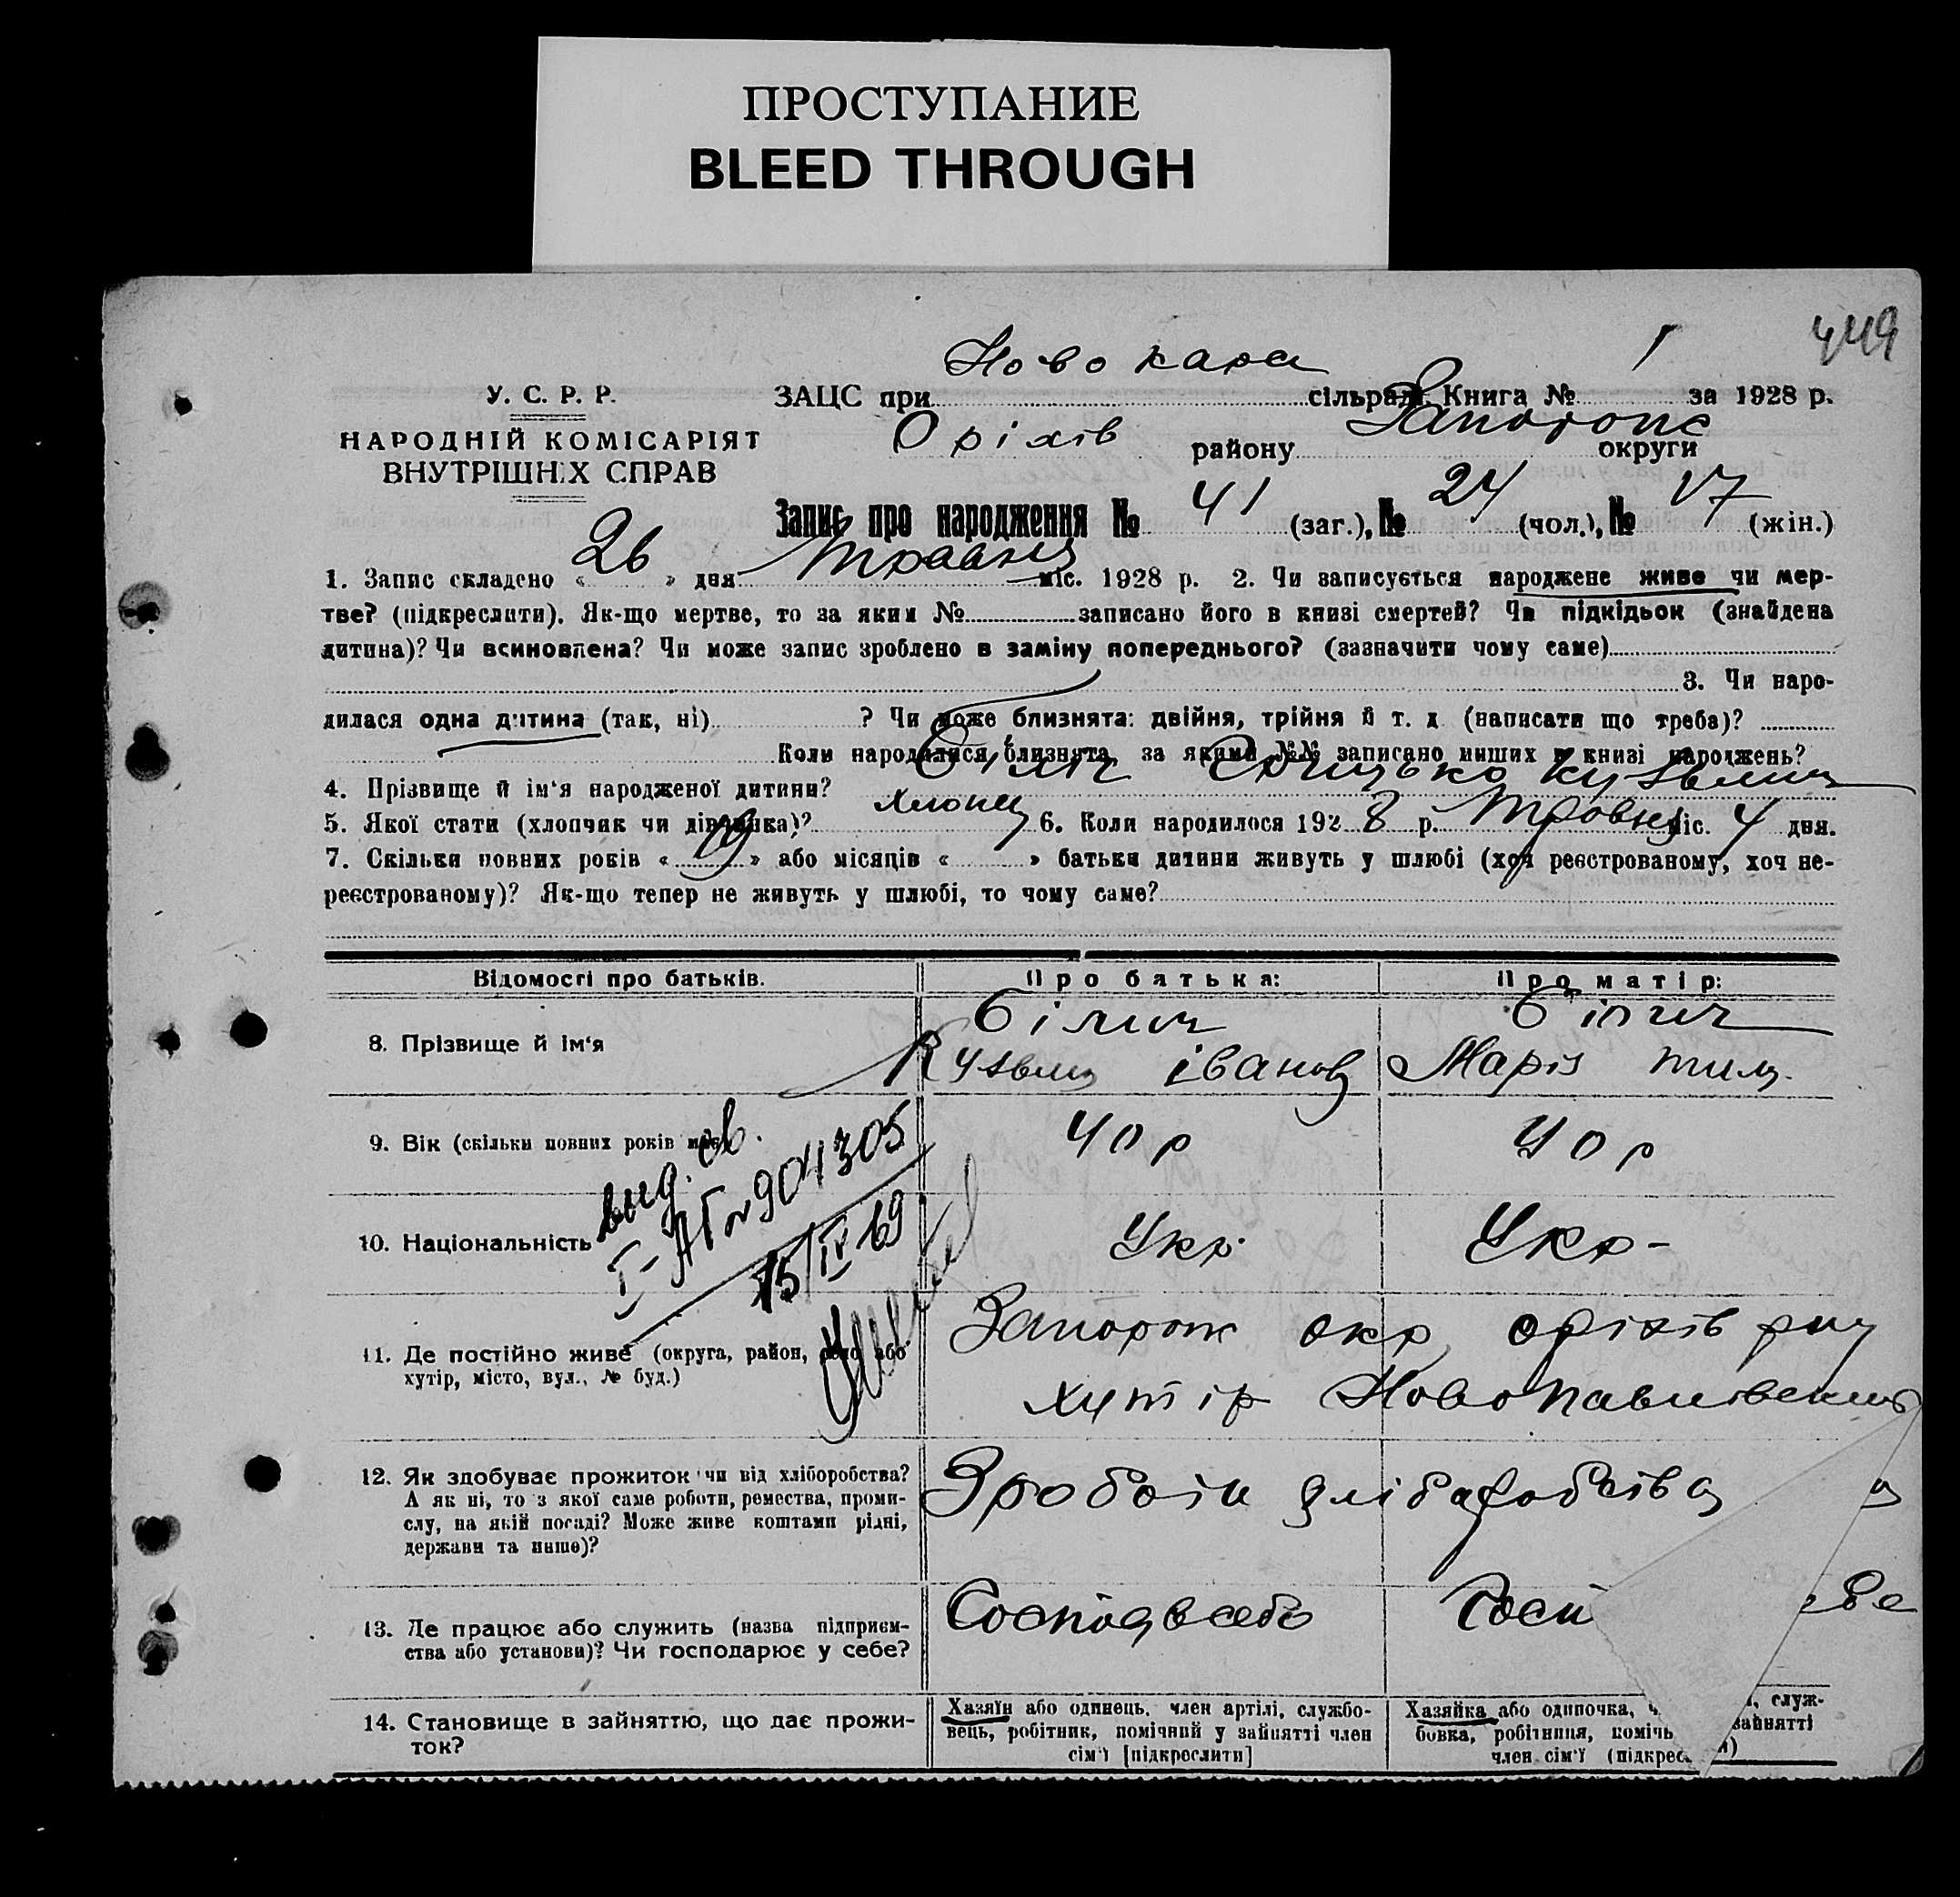 ПРОСТУПАНИЕ
BLEED THROUGH
449
У. С. Р. Р.
НАРОДНІЙ КОМІСАРІЯТ
ВНУТРІШНІХ СПРАВ
ЗАЦС при Ново кара сільраді. Книга № 1 за 1928 р.
Оріхів району Запорож округи
Запис про народження № 41 (заг.), № 24 (чол.), № 17 (жін.)
1. Запис складено « 26 » дня травня міс. 1928 р. 2. Чи записується народжене живе чи мер-
тве? (підкреслити). Як-що мертве, то за яким № записано його в книзі смертей? Чи підкідьок (знайдена
дитина)? Чи всиновлена? Чи може запис зроблено в заміну попереднього? (зазначити чому саме)
3. Чи наро-
дилася одна дитина (так, ні) ? Чи може близнята: двійня, трійня й т. д. (написати що треба)?
Коли народилися близнята, за якими №№ записано инших в книзі народжень?
4. Прізвище й ім'я народженої дитини? Білич Грицько Кузьмич
5. Якої стати (хлопчик чи дівчинка)? хлопец 6. Коли народилося 1928 р. Травня міс. 4 дня.
7. Скільки повних років « 19 » або місяців « » батьки дитини живуть у шлюбі (хоч реєстрованому, хоч не-
реєстрованому)? Як-що тепер не живуть у шлюбі, то чому саме?
Відомості про батьків. Про батька: Про матір:
8. Прізвище й ім'я Білич Білич
Кузьма іванов Марія тим.
9. Вік (скільки повних років має) 40 р 40 р
вид. св.
I-АГ № 904305
15/IV 69
10. Національність Укр. Укр-
11. Де постійно живе (округа, район, село або
хутір, місто, вул., № буд.)
Запорож окр оріхів рну
хутір Новопавлівський
12. Як здобуває прожиток чи від хліборобства?
А як ні, то з якої саме роботи, ремества, проми-
слу, на якій посаді? Може живе коштами рідні,
держави та инше)?
13. Де працює або служить (назва підприєм-
ства або установи)? Чи господарює у себе?
14. Становище в зайняттю, що дає прожи-
ток?
Хазяїн або одинець, член артілі, службо-
вець, робітник, помічний у зайнятті член
сім'ї [підкреслити]
Хазяйка або одиночка, ч , служ-
бовка, робітниця, поміч зайнятті
член сім'ї (підкрес и)